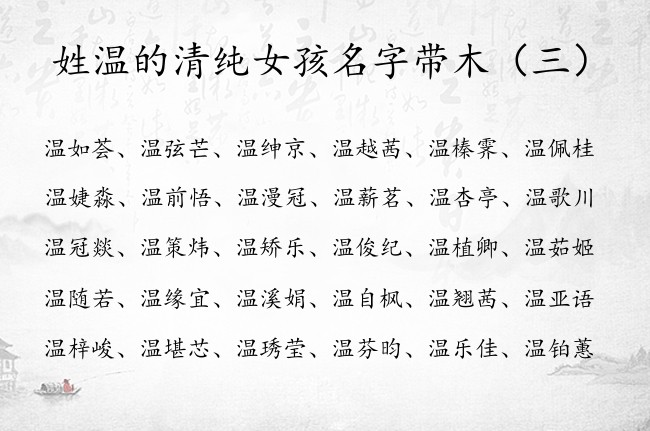 姓温的清纯女孩名字带木（三）
温如荟、温弦芒、温绅京、温越茜、温榛霁、温佩桂
温婕淼、温前悟、温漫冠、温薪茗、温杏亭、温歌川
温冠燚、温策炜、温矫乐、温俊纪、温植卿、温茹姬
温随若、温缘宜、温溪娟、温自枫、温翘茜、温亚语
温梓峻、温堪芯、温琇莹、温芬昀、温乐佳、温铂蕙